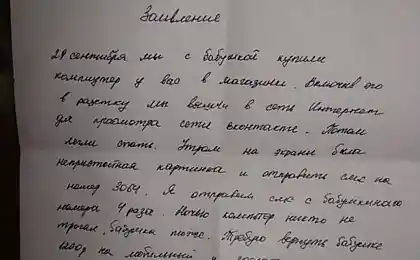 Заявление
29 сентября мы с бабушкой купили
компьютер у вас в магазине. Включив его
в розетку мы вышли в сети Интернет
для просмотра сети вконтакте. Потом
легли спать. Утром на экране была
непристойная картинка и отправить смс на
номер 3064. Я отправил смс с бабушкиного
номера 4 раза. Ночью компьтер никто не
трогал, бабушка тоже. Требую вернуть бабушке
на мобильный и